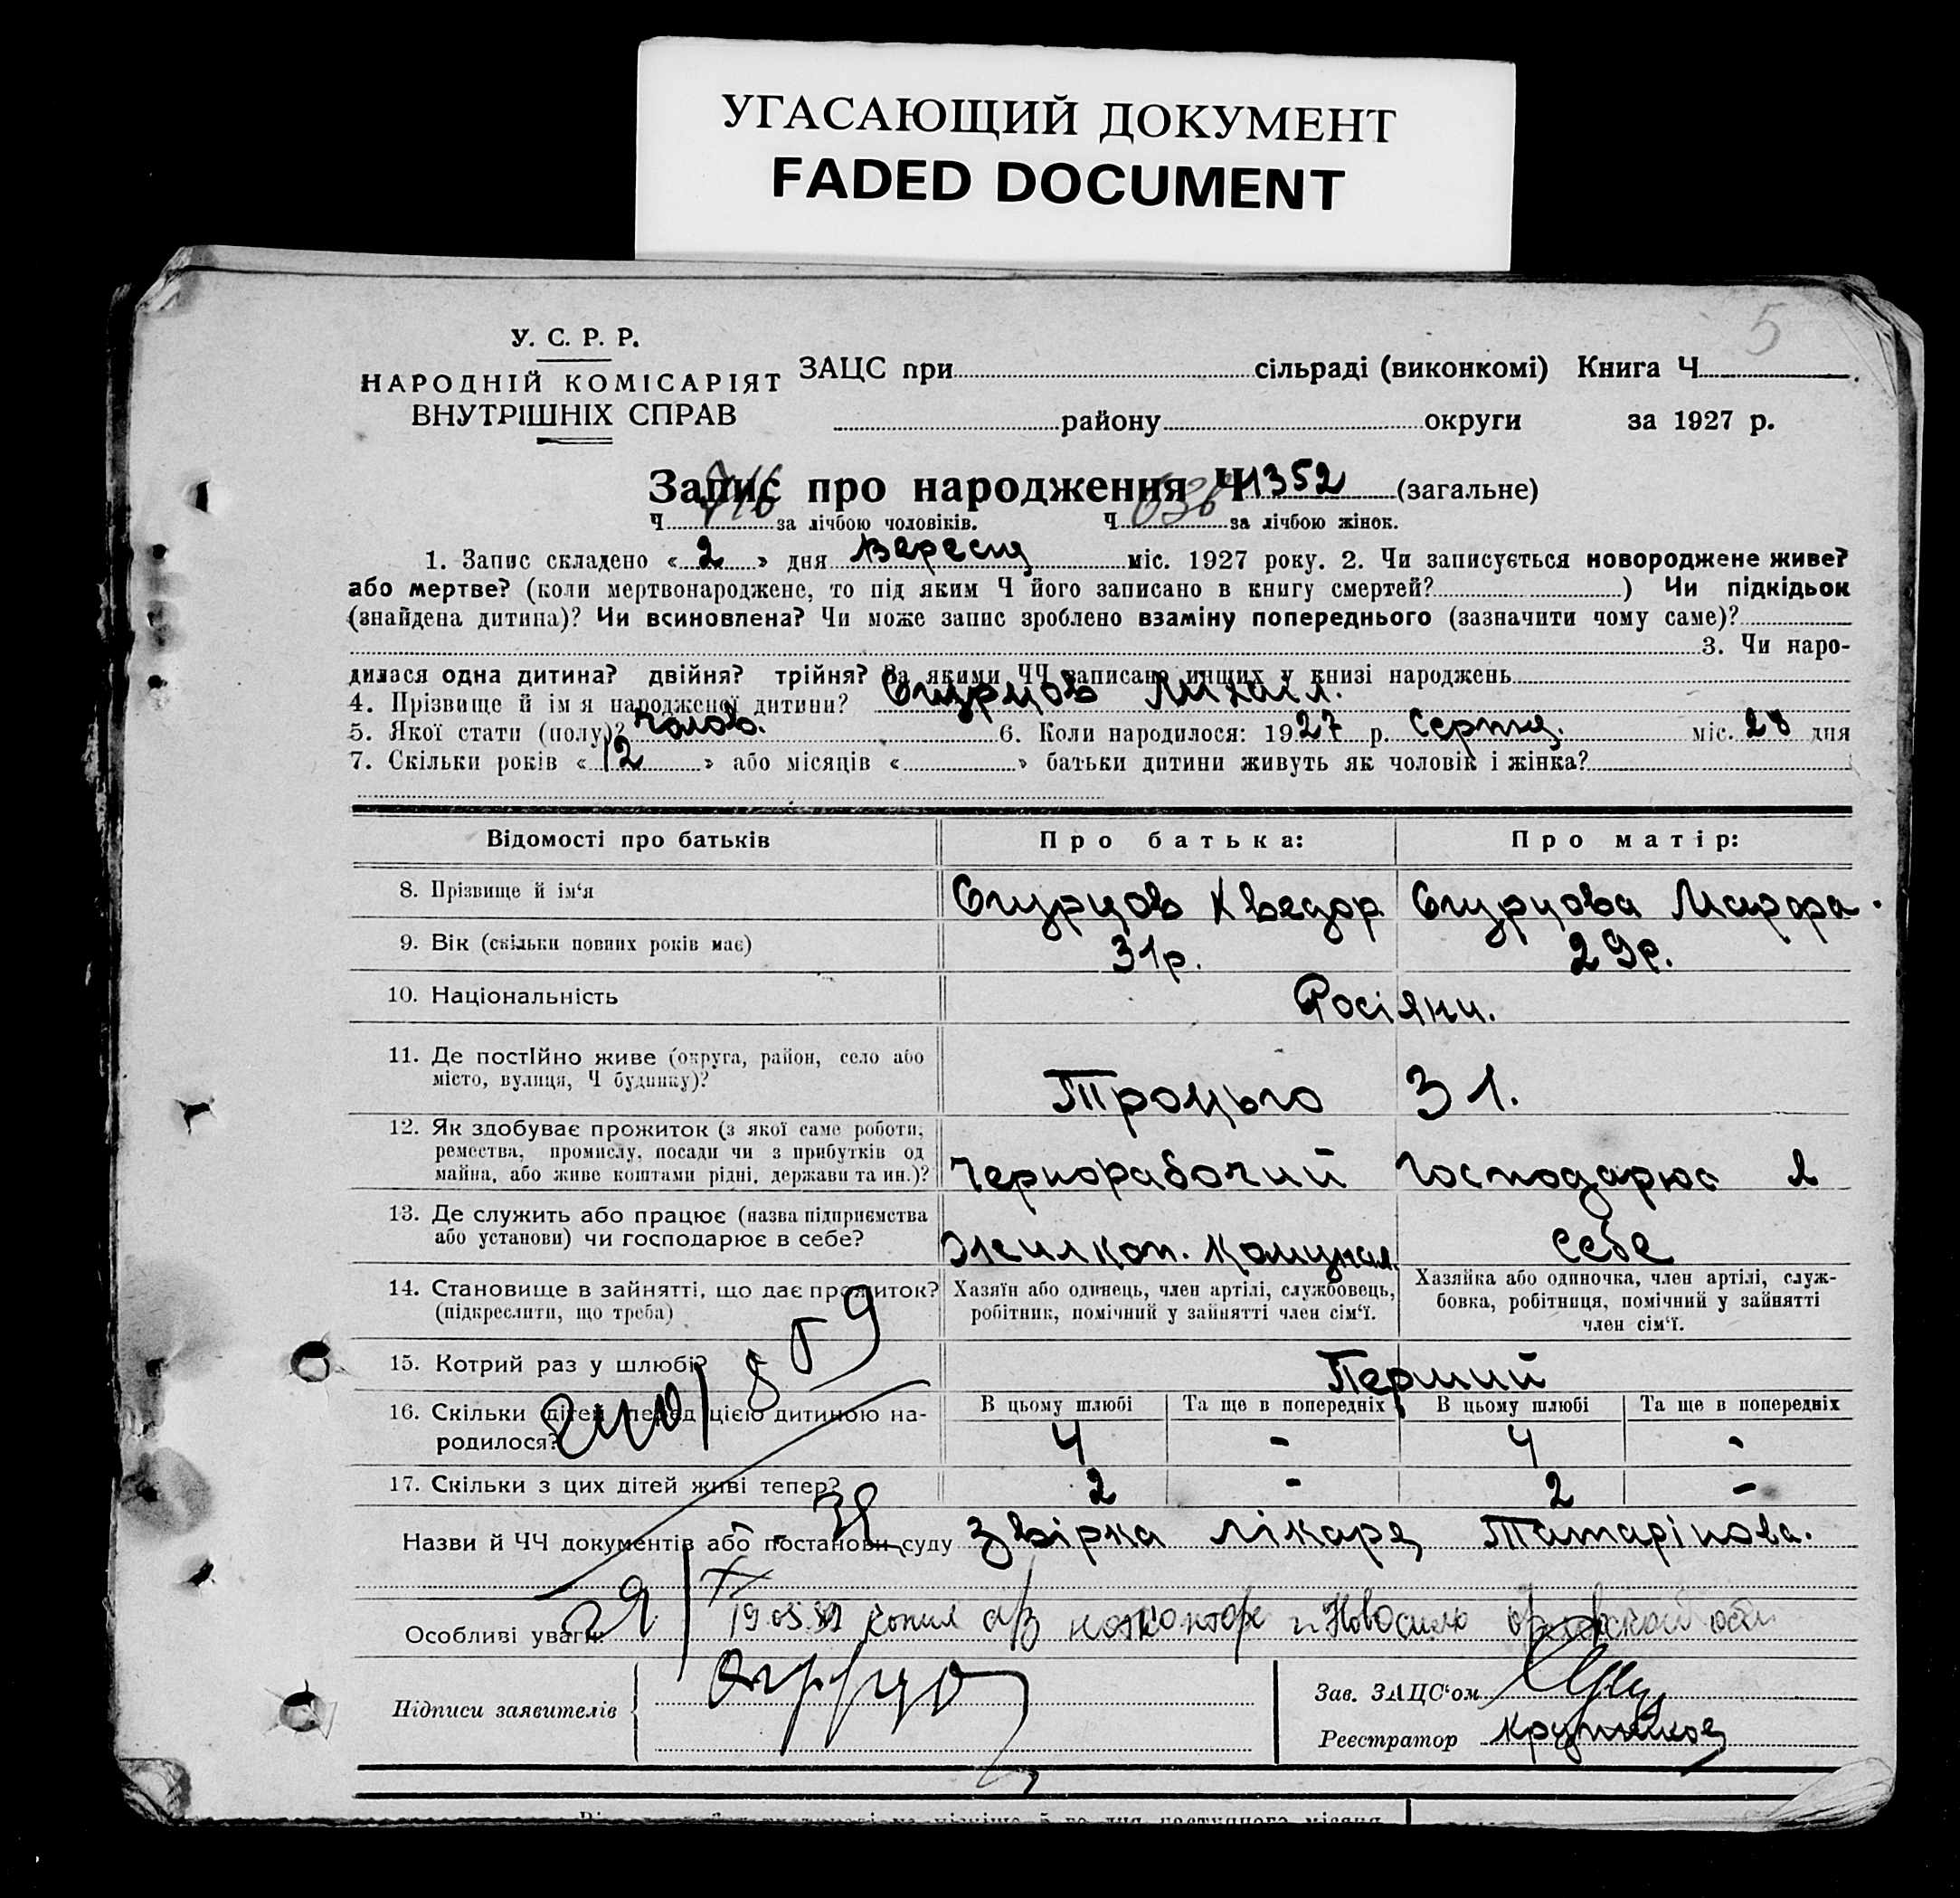 УГАСАЮЩИЙ ДОКУМЕНТ
FADED DOCUMENT
5
У. С. Р. Р.
НАРОДНІЙ КОМІСАРІЯТ
ВНУТРІШНІХ СПРАВ
ЗАЦС при сільраді (виконкомі) Книга Ч
району округи за 1927 р.
Запис про народження Ч 1352 (загальне)
Ч 716 за лічбою чоловіків. Ч 636 за лічбою жінок.
1. Запис складено « 2 » дня Вересня міс. 1927 року. 2. Чи записується новороджене живе?
або мертве? (коли мертвонароджене, то під яким Ч його записано в книгу смертей? ) Чи підкідьок
(знайдена дитина)? Чи всиновлена? Чи може запис зроблено взаміну попереднього (зазначити чому саме)?
3. Чи наро-
дилася одна дитина? двійня? трійня? За якими ЧЧ записано инших у книзі народжень
4. Прізвище й ім'я народженої дитини? Огурцов Михаіл.
5. Якої стати (полу)? чолов. 6. Коли народилося: 1927 р. Серпня. міс. 28 дня
7. Скільки років « 12 » або місяців « » батьки дитини живуть як чоловік і жінка?
Відомості про батьків Про батька: Про матір:
8. Прізвище й ім'я Огурцов Хведор Огурцова Марфа.
9. Вік (скільки повних років має) 31р. 29р.
10. Національність Росіяни.
11. Де постійно живе (округа, район, село або
місто, вулиця, Ч будинку)? Троцького 31.
12. Як здобуває прожиток (з якої саме роботи,
ремества, промислу, посади чи з прибутків од
майна, або живе коштами рідні, держави та ин.)? Чернорабочий Господарює в
13. Де служить або працює (назва підприємства
або установи) чи господарює в себе? Жилкоп. Комунал. себе
14. Становище в зайнятті, що дає прожиток?
(підкреслити, що треба)
Хазяїн або одинець, член артілі, службовець,
робітник, помічний у зайнятті член сім'ї.
Хазяйка або одиночка, член артілі, служ-
бовка, робітниця, помічний у зайнятті
член сім'ї.
15. Котрий раз у шлюбі? Перший
16. Скільки дітей перед цією дитиною на-
родилося?
В цьому шлюбі Та ще в попередніх В цьому шлюбі Та ще в попередніх
4 - 4 -
17. Скільки з цих дітей живі тепер? 2 - 2 -
Назви й ЧЧ документів або постанови суду Звірка лікаря Татарінова.
Особливі уваги: 19.05. копия а/з г. Новосиль орловской обл
Підписи заявителів Огурцов
Зав. ЗАЦС'ом
Реєстратор